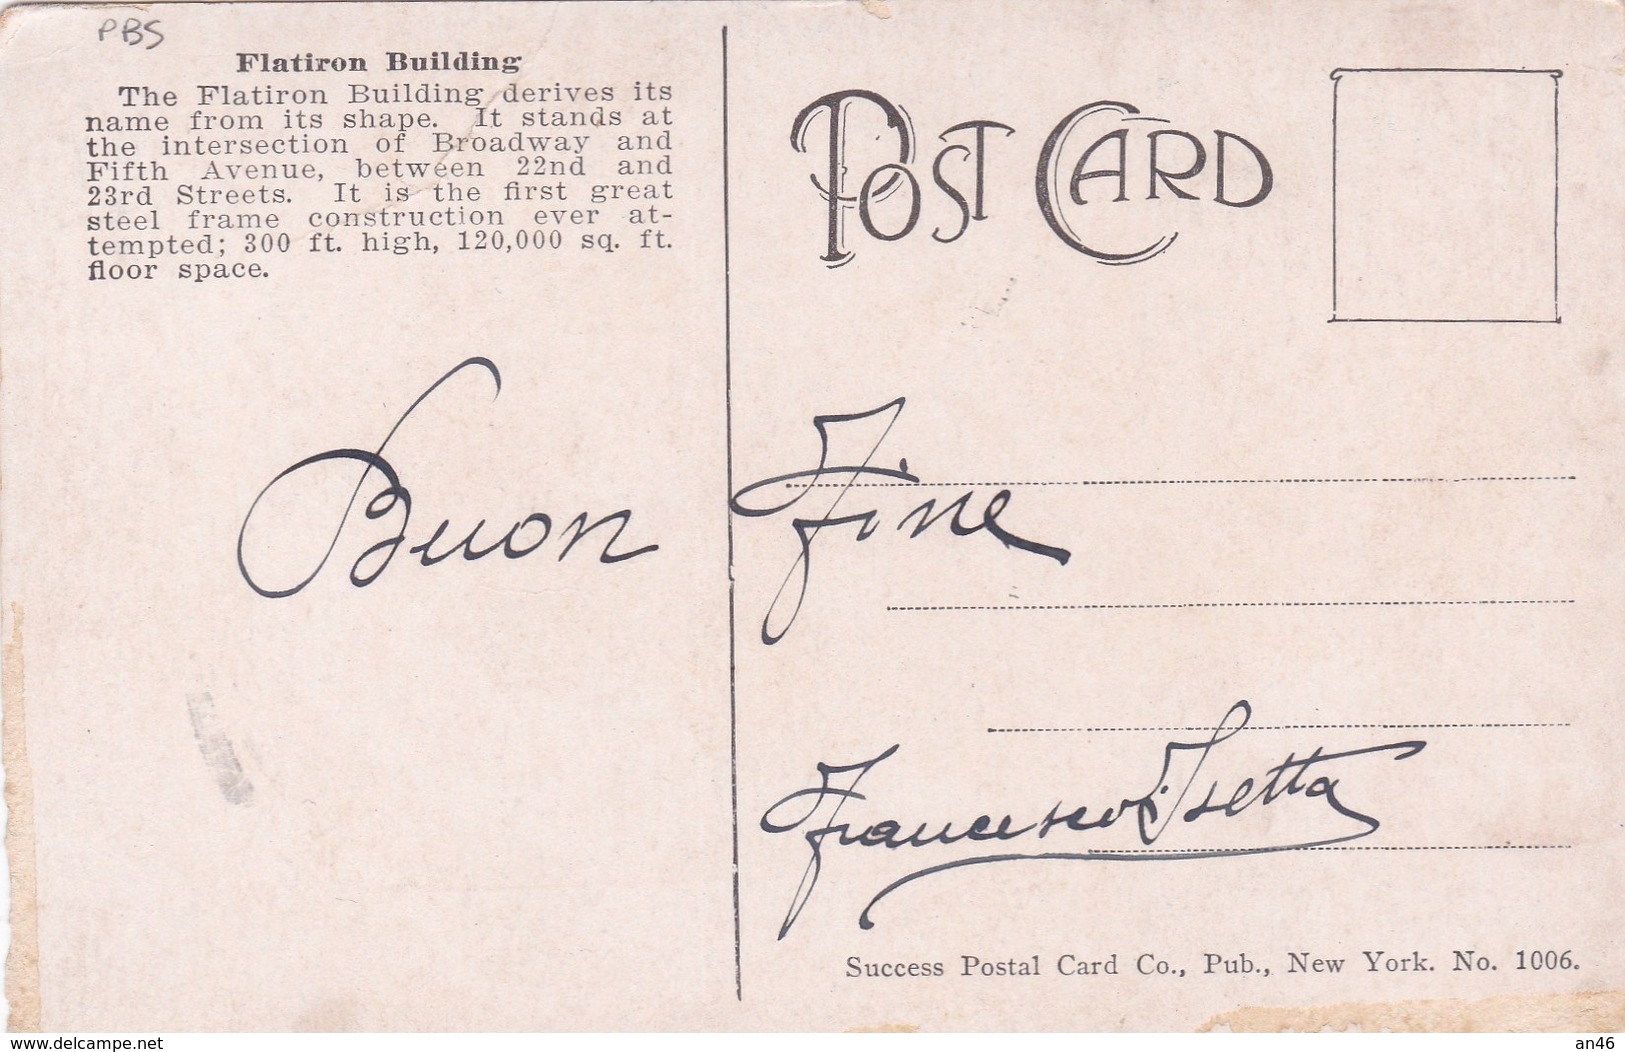 PBS
Flatiron Building
The Flatiron Building derives its
name from its shape. It stands at
the intersection of Broadway and
Fifth Avenue, between 22nd and
23rd Streets. It is the first great
steel frame construction ever at-
tempted; 300 ft. high, 120,000 sq. ft.
floor space.
POST CARD
Buon Fine
Francesco Isetta
Success Postal Card Co., Pub., New York. No. 1006.
www.delcampe.net
an46